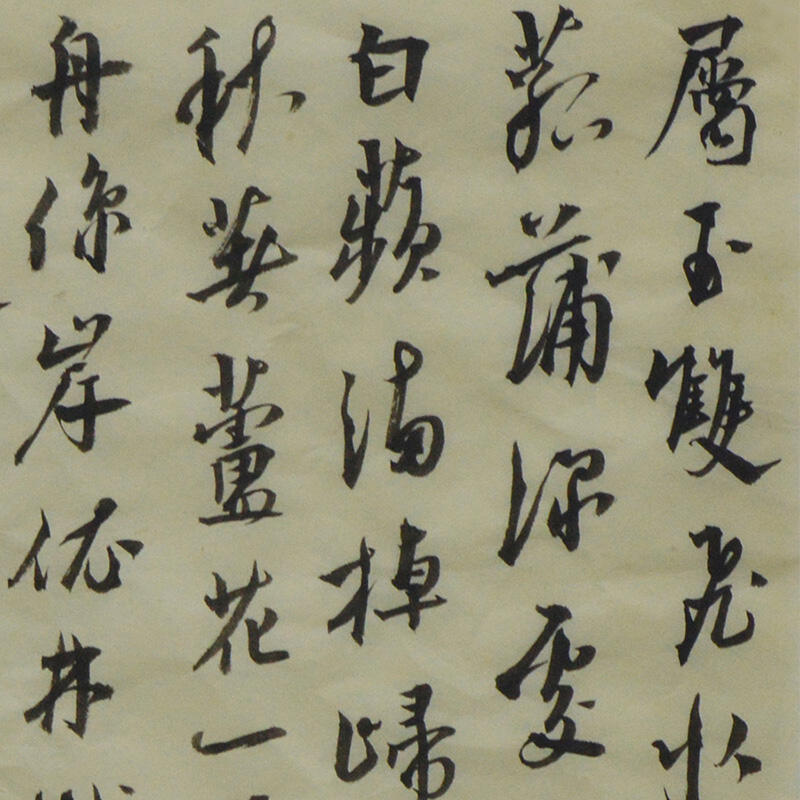 屬玉雙飛水
菰蒲深處
白蘋滿棹歸
秋著蘆花一
舟係岸依林